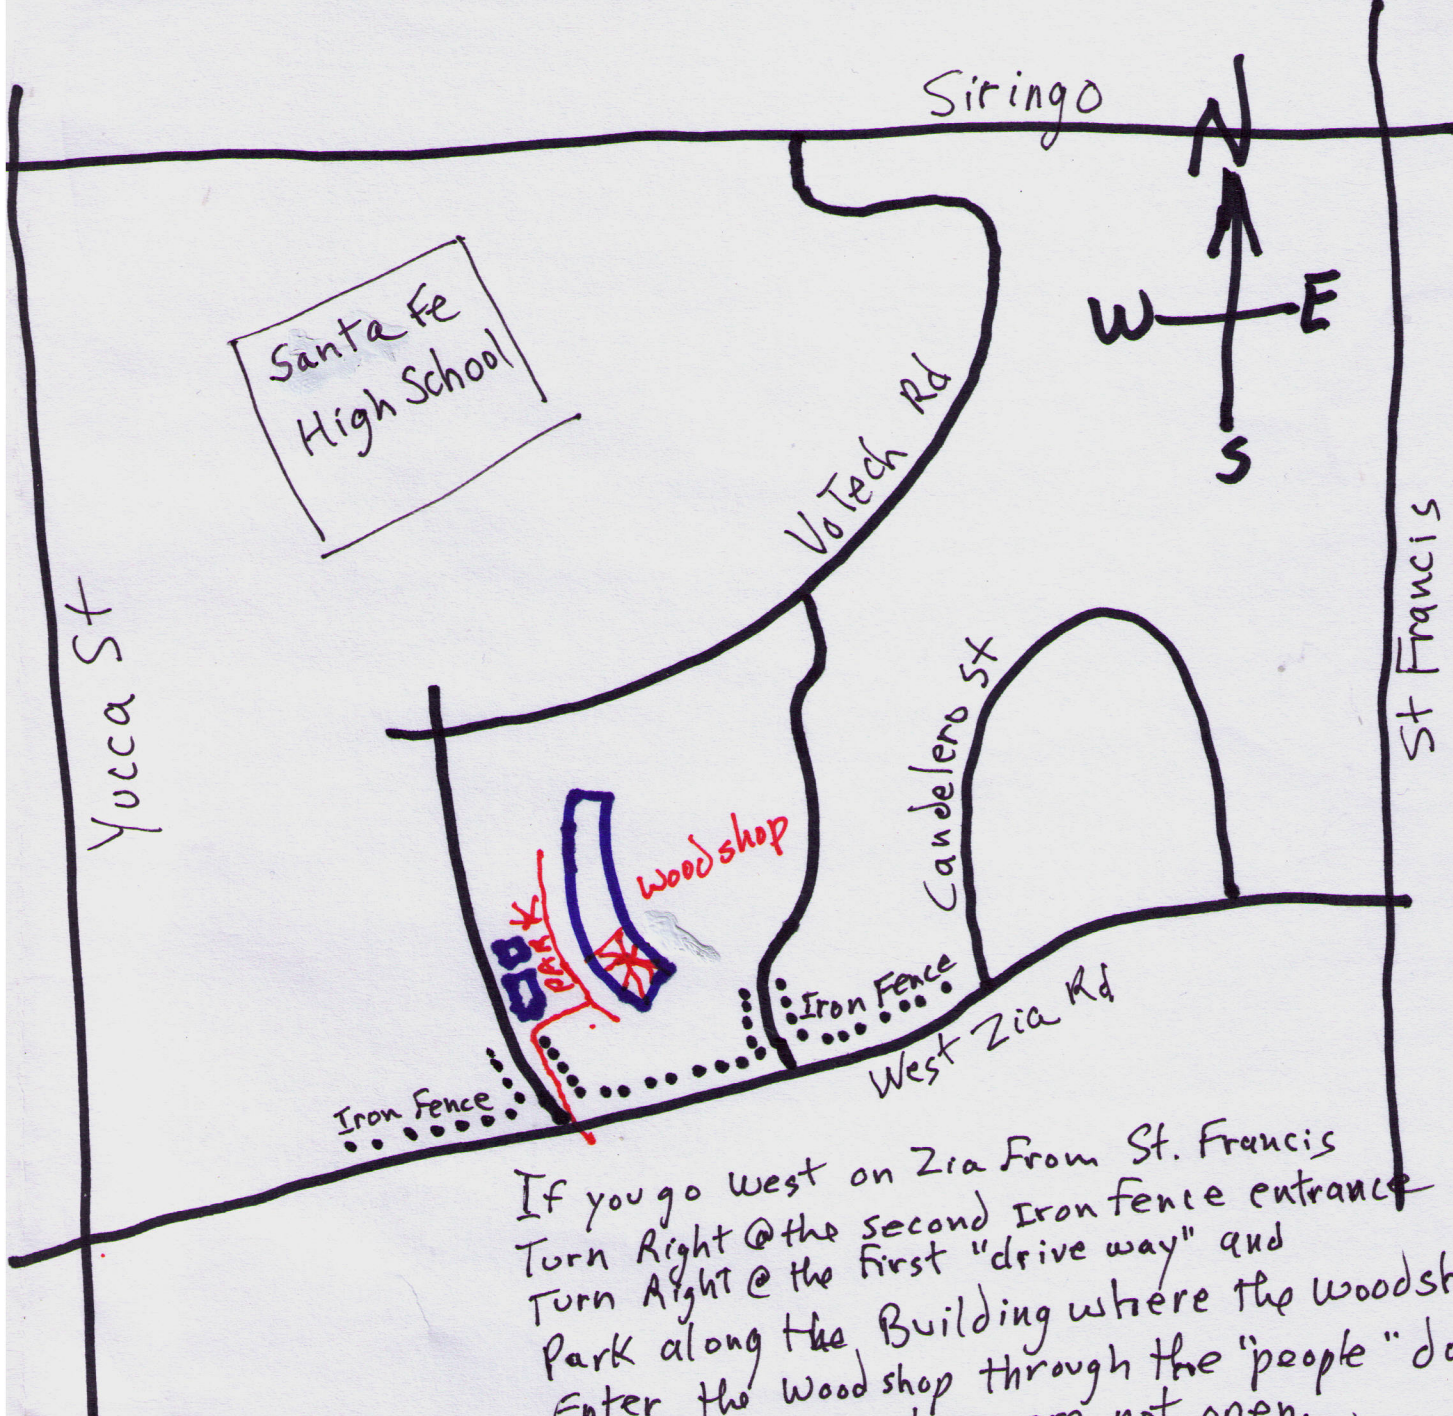 Siringo
N
W
E
S
Santa Fe
High School
VoTech Rd
Yucca St
St Francis
Candelero St
Woodshop
PARK
Iron Fence
Iron Fence
West Zia Rd
If you go west on Zia From St. Francis
Turn Right @ the second Iron fence entrance
Turn Right @ the first "drive way" and
Park along the Building where the woodsh
Enter the Woodshop through the "people" do
not open.